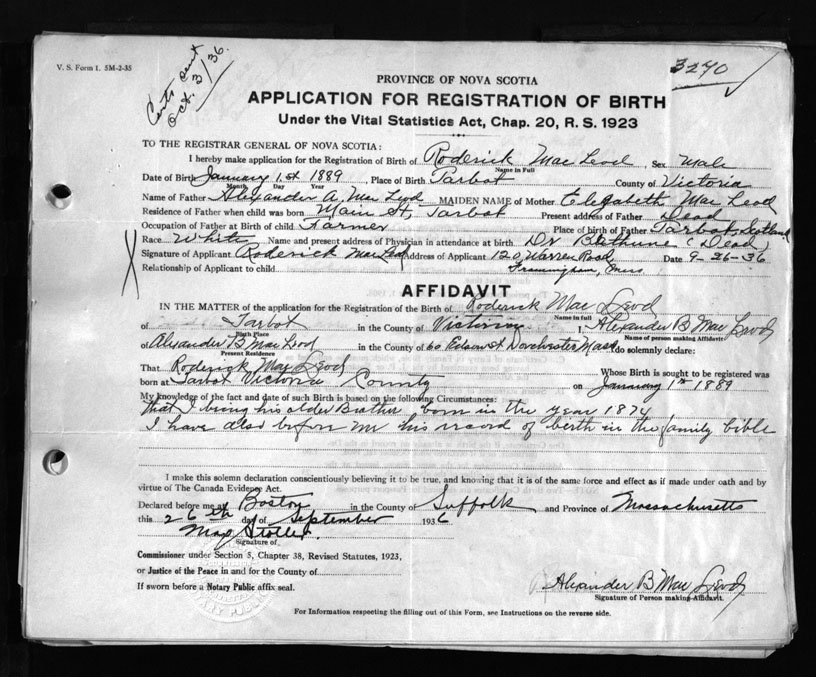 V. S. Form 1. 5M-2-35
Certs sent
Oct. 3/36.
3270
PROVINCE OF NOVA SCOTIA
APPLICATION FOR REGISTRATION OF BIRTH
Under the Vital Statistics Act, Chap. 20, R. S. 1923
TO THE REGISTRAR GENERAL OF NOVA SCOTIA:
I hereby make application for the Registration of Birth of Roderick Mac Leod, Sex Male
Name in Full
Date of Birth January 1st 1889 Place of Birth Tarbot County of Victoria
Month Day Year
Name of Father Alexander A. Mac Leod MAIDEN NAME of Mother Elezabeth Mac Leod
Residence of Father when child was born Main St, Tarbot Present address of Father Dead
Occupation of Father at Birth of child Farmer Place of birth of Father Tarbot, Scotland
Race White Name and present address of Physician in attendance at birth Dr Bethune (Dead)
Signature of Applicant Roderick Mac Leod Address of Applicant 120 Warren Road Date 9-26-36
Relationship of Applicant to child Framingham, Mass
AFFIDAVIT
IN THE MATTER of the application for the Registration of Birth of Roderick Mac Leod
Name in full
of Tarbot in the County of Victoria I, Alexander B Mac Leod
Birth Place Name of person making Affidavit
of Alexander B Mac Leod in the County of 60 Edson St Dorchester Mass do solemnly declare:
Present Residence
That Roderick Mac Leod Whose Birth is sought to be registered was
born at Tarbot Victoria County on January 1st 1889
My knowledge of the fact and date of such Birth is based on the following Circumstances:
that I being his older Brother born in the year 1874
I have also before me his record of birth in the family bible
I make this solemn declaration conscientiously believing it to be true, and knowing that it is of the same force and effect as if made under oath and by
virtue of The Canada Evidence Act.
Declared before me at Boston in the County of Suffolk and Province of Massachusetts
this 26th day of September 1936
Max Stoller.
Signature of
Commissioner under Section 5, Chapter 38, Revised Statutes, 1923,
or Justice of the Peace in and for the County of
If sworn before a Notary Public affix seal.
Alexander B Mac Leod
Signature of Person making Affidavit.
For Information respecting the filling out of this Form, see Instructions on the reverse side.